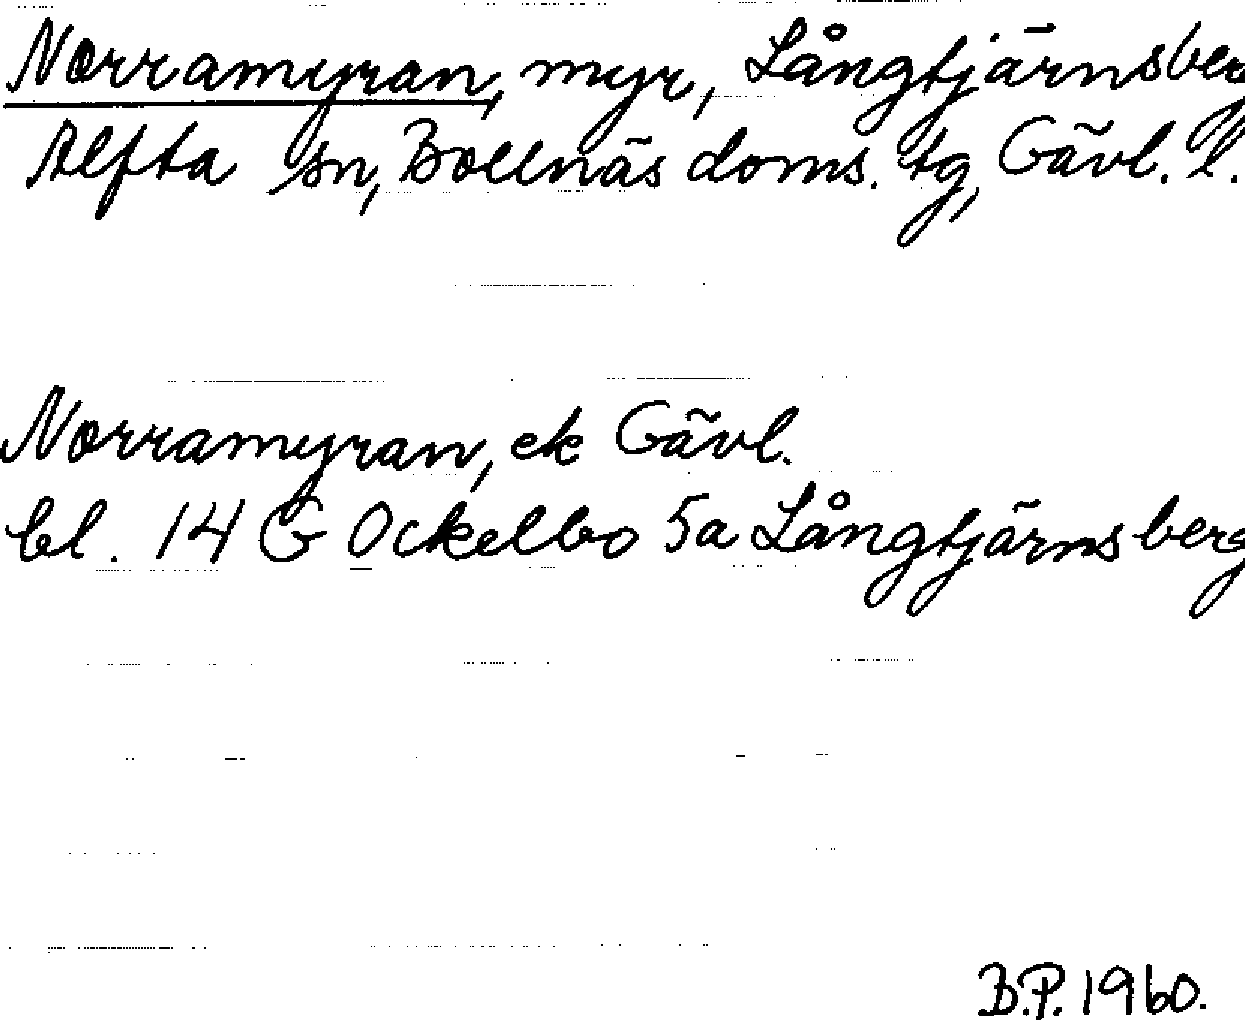 Norramyran, myr, Långtjärnsberg
Alfta sn, Bollnäs doms. tg, Gävl. l.
Norramyran, ek Gävl.
bl. 14 G Ockelbo 5a Långtjärnsberg
B.P. 1960.